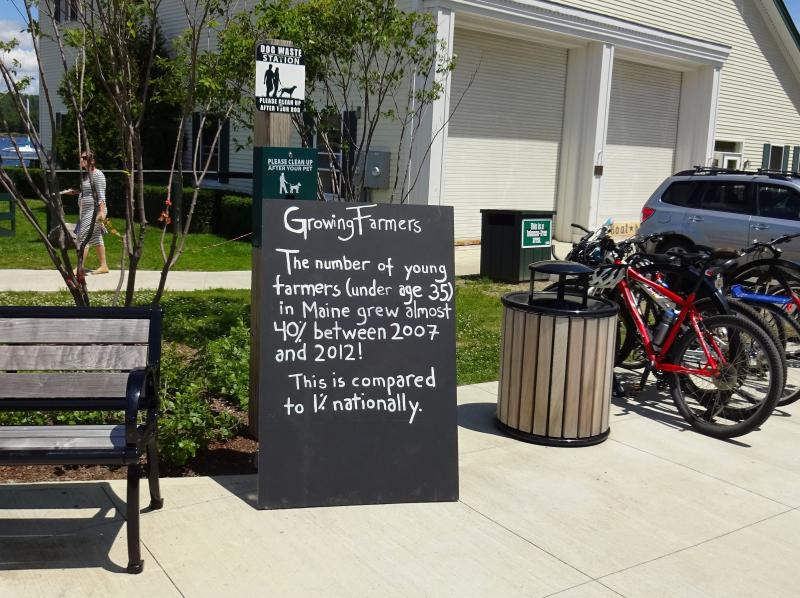 DOG WASTE
STATION
PLEASE CLEAN UP
AFTER YOUR DOG
PLEASE CLEAN UP
AFTER YOUR PET
Growing Farmers
The number of young
farmers (under age 35)
in Maine grew almost
40% between 2007
and 2012!
This is compared
to 1% nationally.
This is a
tobacco-free
area.
Boat